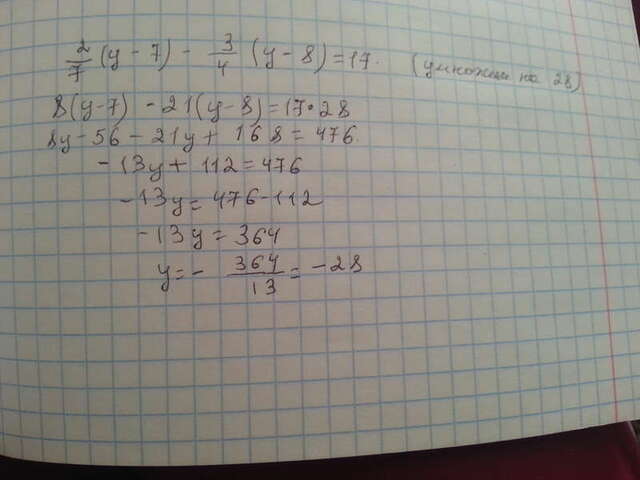 2/7 (y - 7) - 3/4 (y - 8) = 17. (умножим на 28)
8(y-7) - 21(y-8) = 17·28
8y - 56 - 21y + 168 = 476.
- 13y + 112 = 476
- 13y = 476 - 112
- 13y = 364
y = - 364/13 = - 28